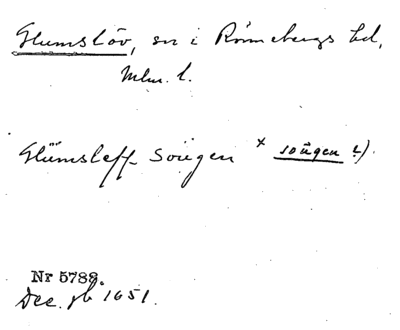 Glumslöv, sn i Rönnebergs hd,
Mlm. l.
Glümsleff soũgen × soũgen !).
Nr 5788.
Dec. jb 1651.